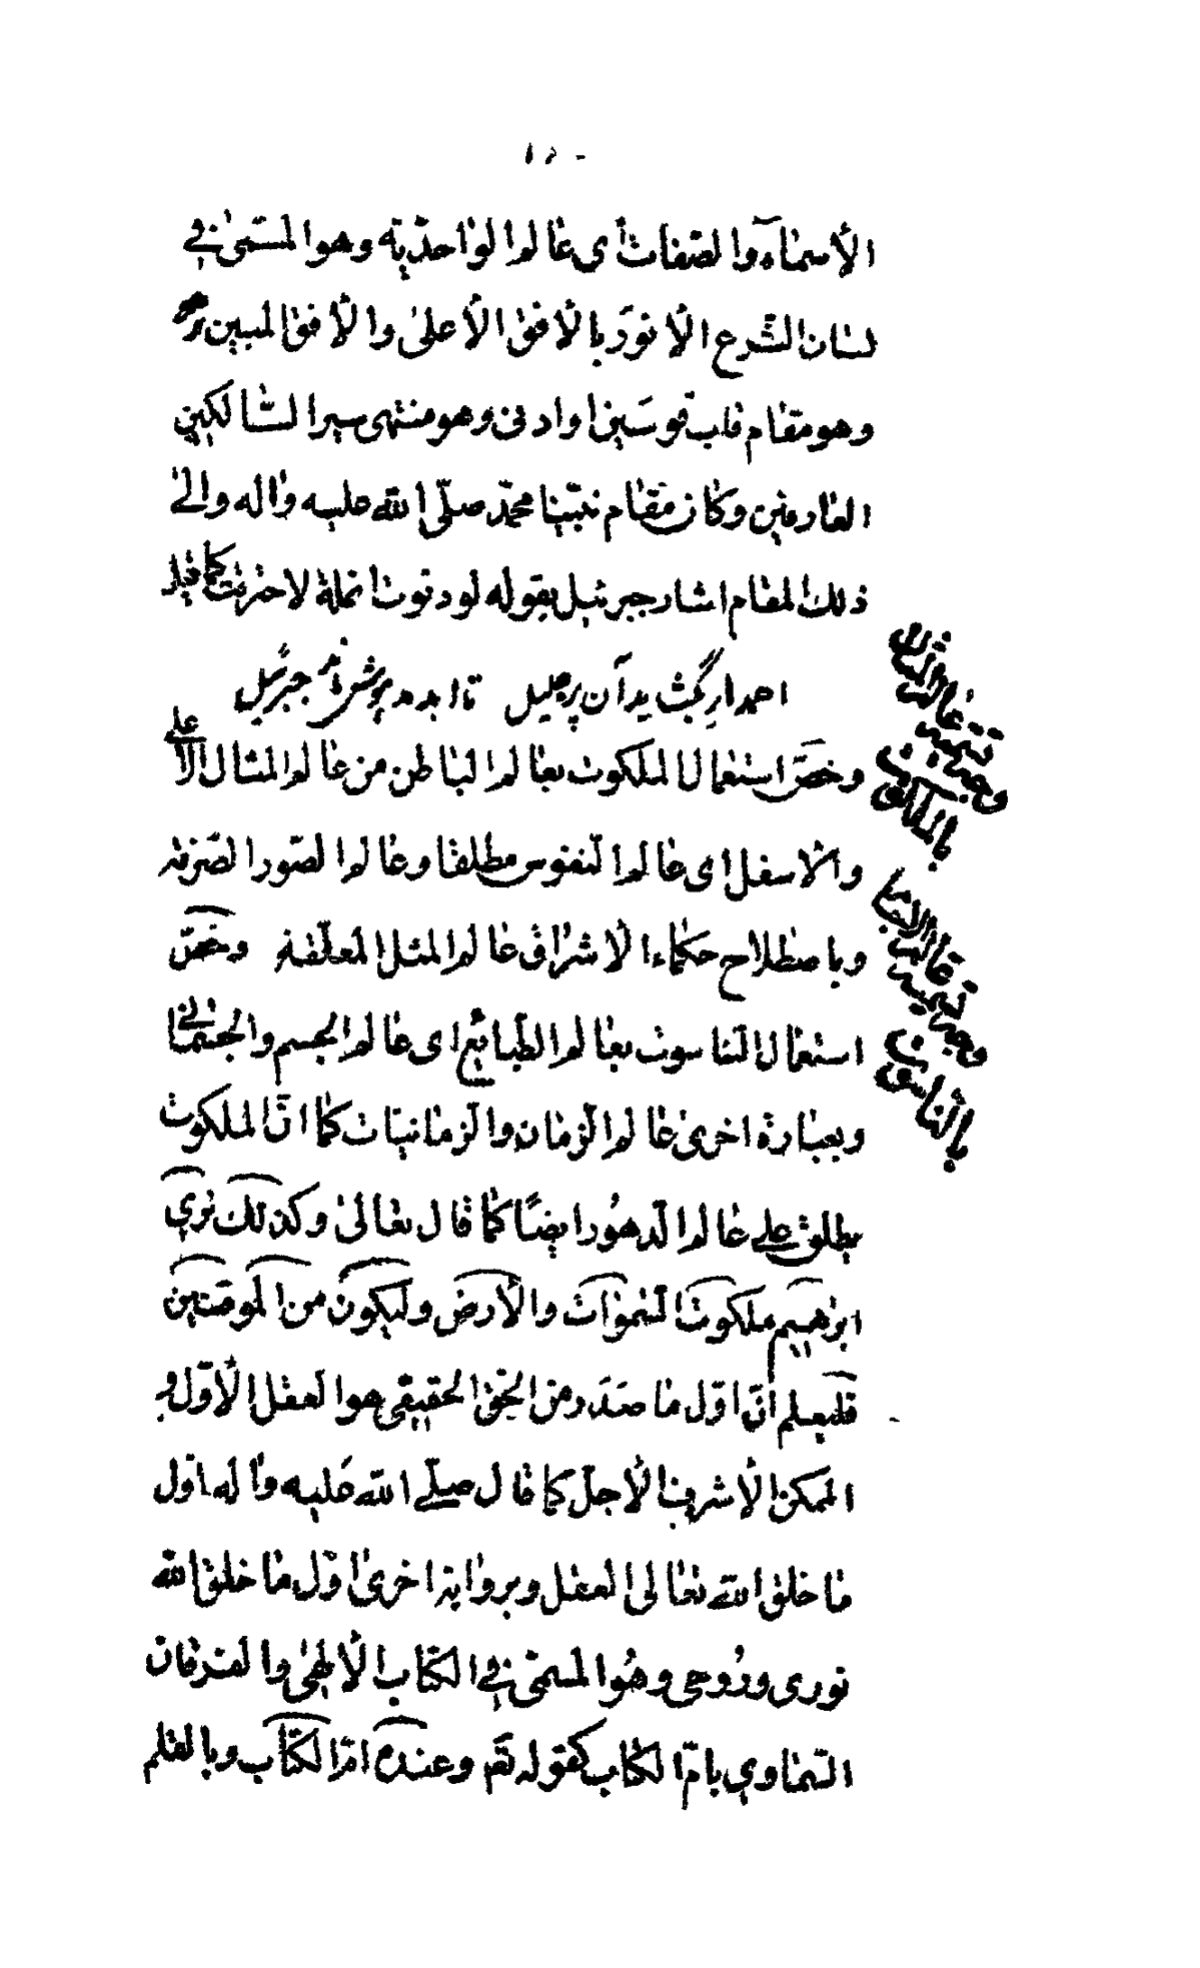 الأسماء والصفات أي عالم الواحدية وهو المسمى في
لسان الشرع الأنور بالأفق الأعلى والأفق المبين
وهو مقام قاب قوسين او ادنى وهو منتهى سير السالكين
العارفين وكان مقام نبينا محمد صلّى الله عليه واله والى
ذلك المقام اشار جبرئيل بقوله لو دنوت انملة لاحترقت كما قيل
احمد ار بگشايد آن پر جليل تا ابد مدهوش ماند جبرئيل
وخصّ استعمال الملكوت بعالم الباطن من عالم المثال الأعلى
والأسفل اى عالم النفوس مطلقا وعالم الصور الصرفة
وباصطلاح حكماء الاشراق عالم المثل المعلّقة وخصّ
استعمال الناسوت بعالم الطبائع اى عالم الجسم والجسماني
وبعبارة اخرى عالم الزمان والزمانيات كما انّ الملكوت
يطلق على عالم الدهور ايضًا كما قال تعالى وكذلك نري
ابرهيم ملكوت السموات والأرض وليكون من الموقنين
فليعلم انّ اوّل ما صدر من الحق الحقيقى هو العقل الأوّل و
الممكن الأشرف الأجلّ كما قال صلّى الله عليه واله اوّل
ما خلق الله تعالى العقل وبرواية اخرى اوّل ما خلق الله
نورى وروحى وهو المسمّى في الكتاب الألهى والفرقان
السماوي بامّ الكتاب كقوله تعم وعنده امّ الكتاب وبالقلم
وجه تسمية عالم المثال
بالملكوت
وجه تسمية عالم الاجسام
بالناسوت